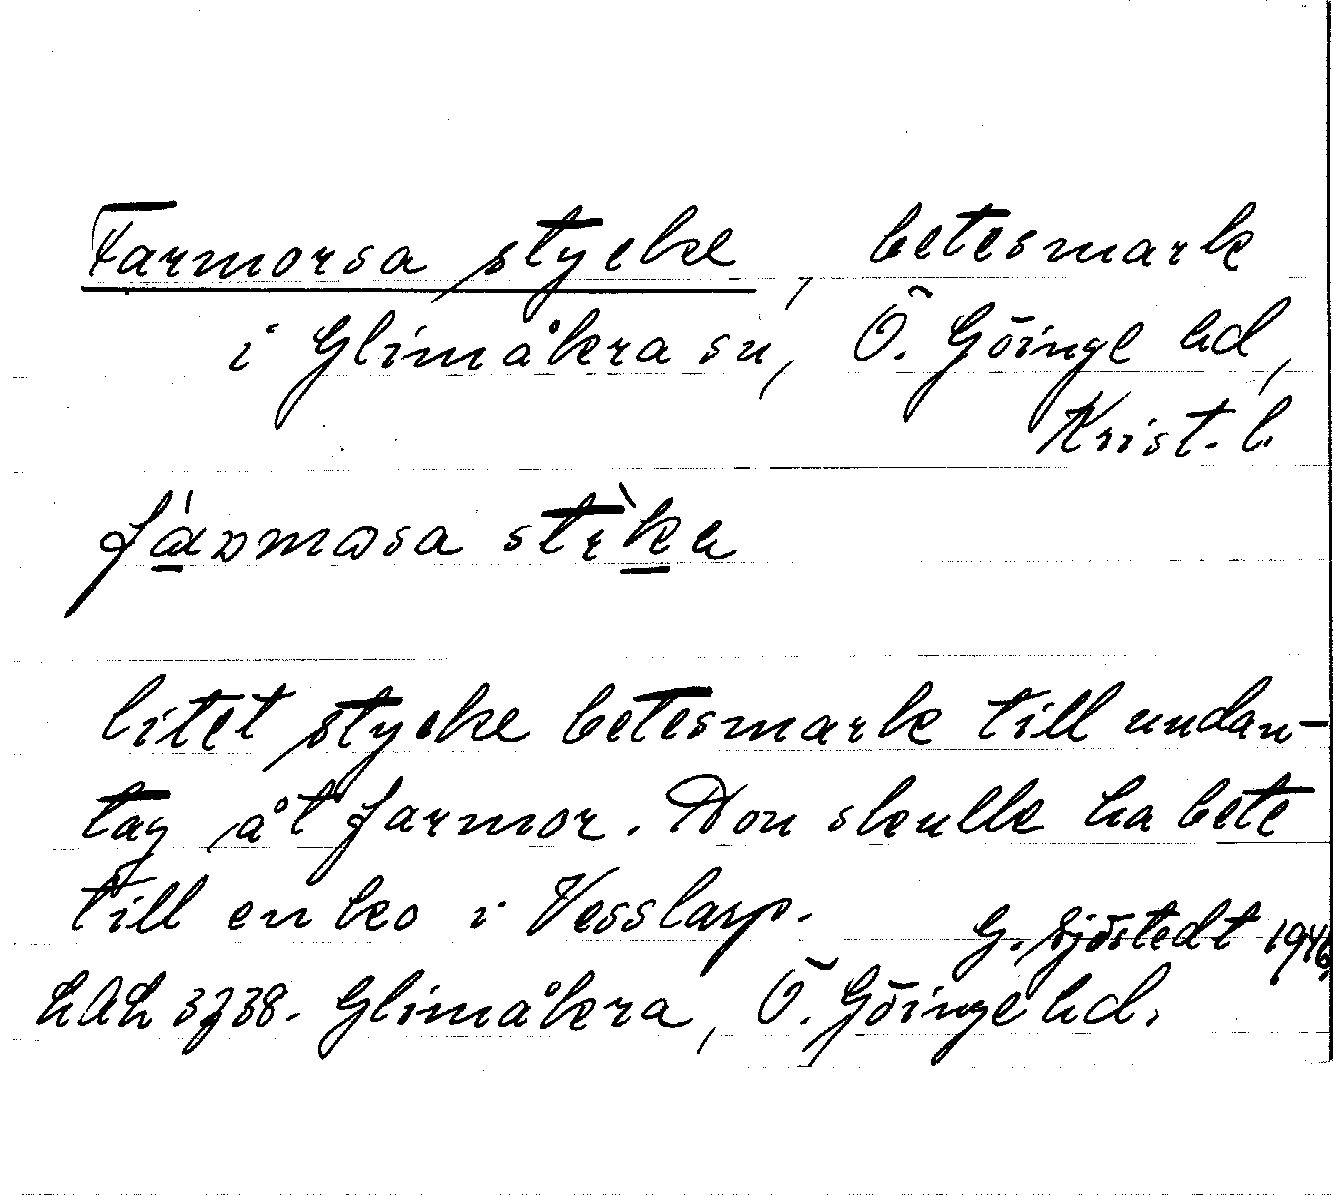 Farmorsa stycke, betesmark
i Glimåkra sn, Ö. Göinge hd,
Krist. l.
litet stycke betesmark till undan-
tag åt farmor. Don skulle ha bete
till en ko i Vesslarp.
G. Sjöstedt 1946
LAL 3238. Glimåkra, Ö. Göinge hd.